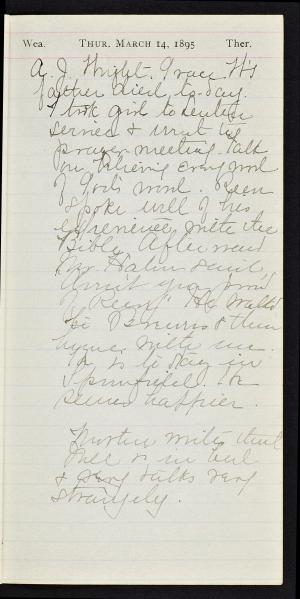 Wea. THUR. MARCH 14, 1895 Ther.
A. J. Wright, Grace W's
father died to-day.
I took girl to Lenten
service & went to
prayer meeting. Talk
on believing every word
of God's word.
spoke well of his
experience with the
Bible. Afterward
Mr. Hahn said,
"Aren't you proud
of He walked
to Brewers & then
home with me.
He is to stay in
Springfield. He
seems happier.
writes that
is in bed
& talks very
strangely.